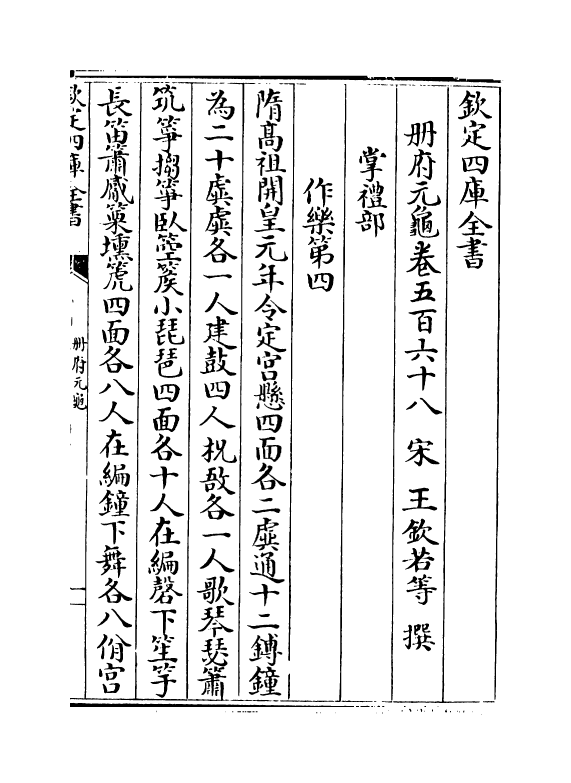 欽定四庫全書
册府元龜卷五百六十八　宋　王欽若等　撰
掌禮部
作樂第四
隋髙祖開皇元年令定宫懸四面各二虡通十二鎛鐘
為二十虡虡各一人建鼓四人柷敔各一人歌琴瑟簫
筑箏搊箏臥箜篌小琵琶四面各十人在編磬下笙竽
長笛簫篳篥壎篪四面各八人在編鐘下舞各八佾宫
欽定四庫全書
册府元龜